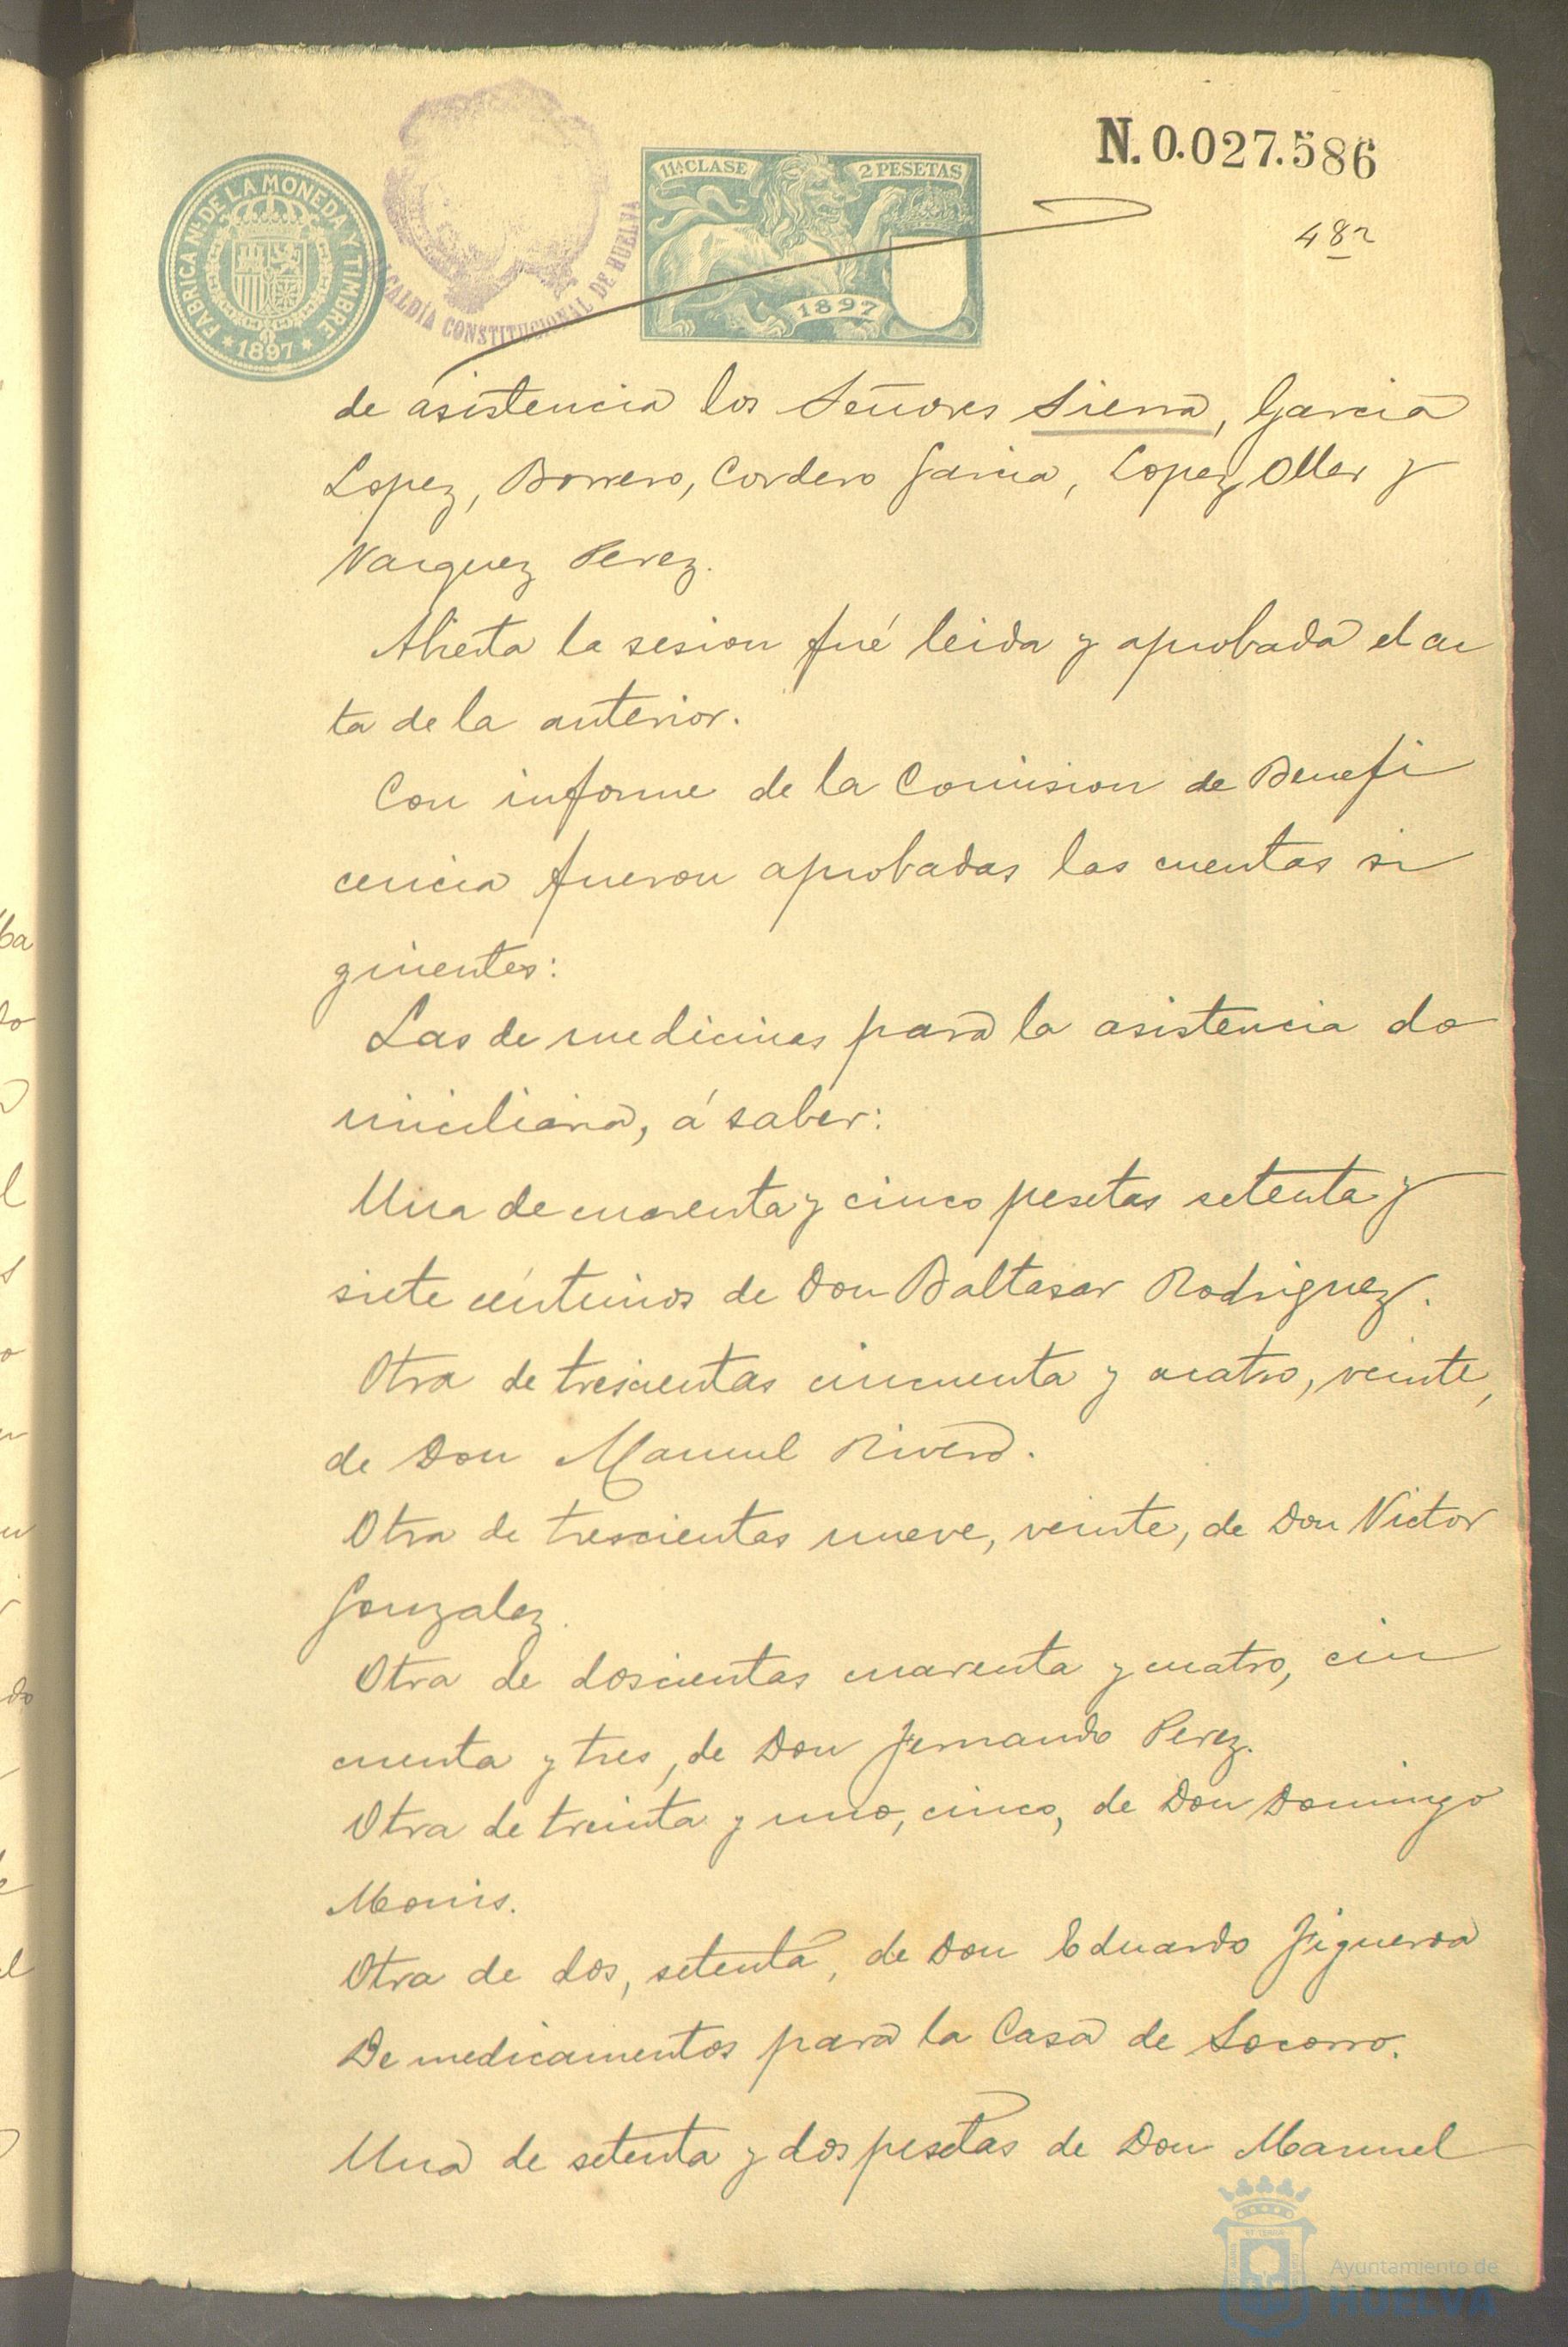 N. 0.027.586
48
FABRICA NAL DE LA MONEDA Y TIMBRE
* 1897 *
ALCALDÍA CONSTITUCIONAL DE HUELVA
11ª CLASE
2 PESETAS
1897
de asistencia los Señores Sierra, Garcia
Lopez, Borrero, Cordero Garcia, Lopez Oller y
Vazquez Perez.
Abierta la sesion fué leida y aprobada el ac
ta de la anterior.
Con informe de la Comision de Benefi
cencia fueron aprobadas las cuentas si
guientes:
Las de medicinas para la asistencia do
miciliaria, á saber:
Una de cuarenta y cinco pesetas setenta y
siete céntimos de Don Baltasar Rodriguez.
Otra de trescientas cincuenta y cuatro, veinte,
de Don Manuel Rivero.
Otra de trescientas nueve, veinte, de Don Victor
Gonzalez.
Otra de doscientas cuarenta y cuatro, cin
cuenta y tres, de Don Fernando Perez.
Otra de treinta y uno, cinco, de Don Domingo
Monis.
Otra de dos, setenta, de Don Eduardo Figueroa
De medicamentos para la Casa de Socorro.
Una de setenta y dos pesetas de Don Manuel
Ayuntamiento de
HUELVA